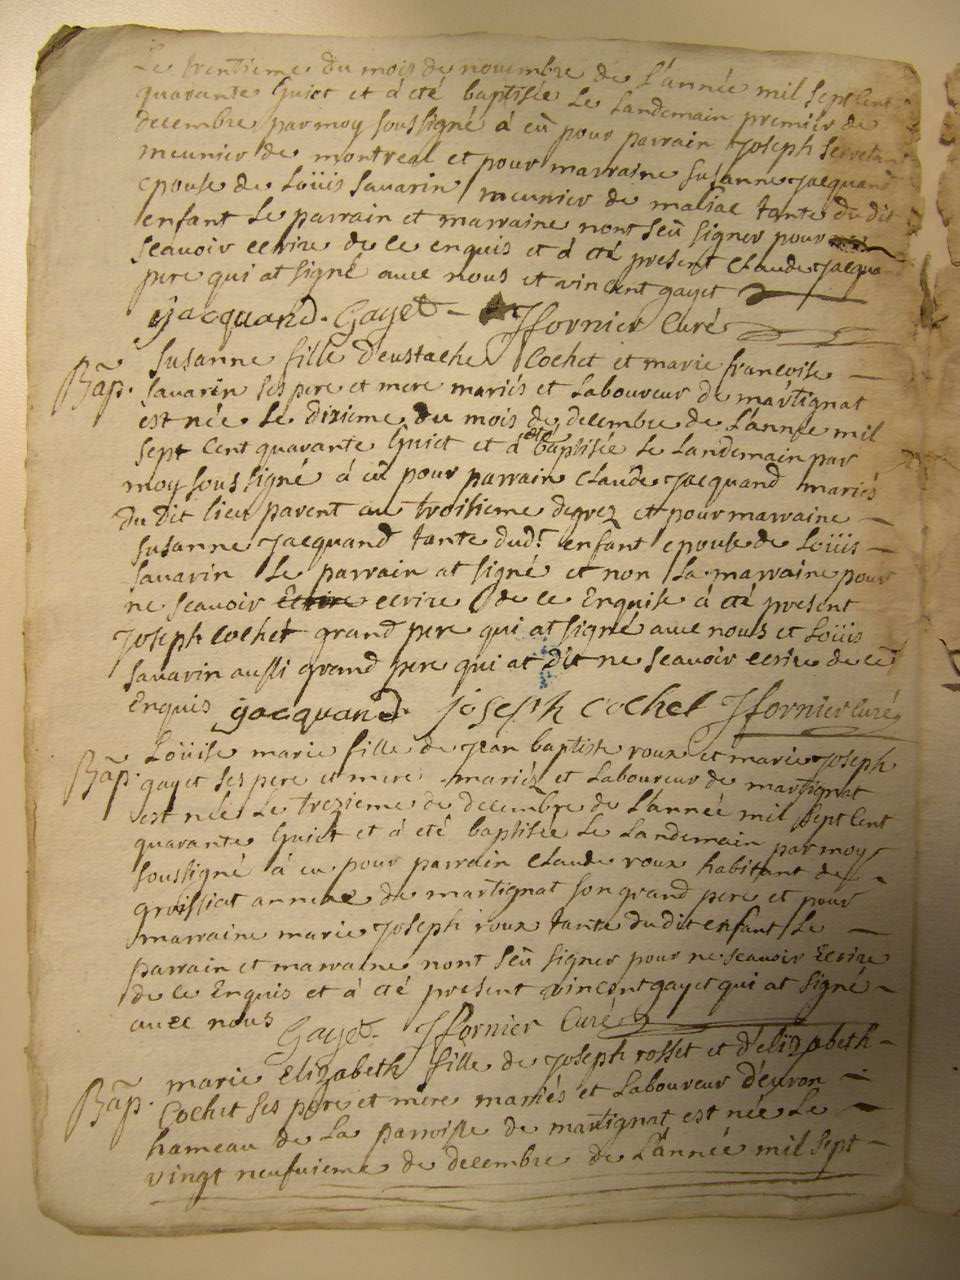 Le trentieme du mois de novembre de L'année mil sept cent
quarante huict et à eté baptisée Le Landemain premier de
decembre par moy soussigné à eû pour parrain Joseph
meunier de montreal et pour marraine susanne jacquand
epouse de Loüis savarin meunier de maliac tante du dit
enfant Le parrain et marraine nont seû signer pour
sçauoir ecrire de ce enquis et à eté present claude jacquand
pere qui at signé auec nous et vincent gayet
jacquand. Gayet Jfornier Curé
Bap. susanne fille d'eustache Cochet et marie francoise
savarin ses pere et mere mariés et Laboureur de martignat
est née Le dixieme du mois de decembre de L'année mil
sept cent quarante huict et à eté baptisée Le Landemain par
moy soussigné à eû pour parrain claude jacquand mariés
du dit lieu parent au troisieme degrez et pour marraine
susanne jacquand tante dud.t enfant epouse de Loüis
savarin Le parrain at signé et non La marraine pour
ne sçauoir ecrire de ce Enquise à eté present
Joseph cochet grand pere qui at signé auec nous et Loüis
savarin aussi grand pere qui at dit ne sçauoir ecrire de ce
Enquis jacquand. joseph cochet Jfornier curé
Bap. Loüise marie fille de jean baptiste roux et marie joseph
gayet ses pere et mere mariéz et Laboureur de martignat
est née Le trezieme de decembre de L'année mil sept cent
quarante huict et à eté baptisée Le Landemain par moy
soussigné à eu pour parrain claude roux habitant de
groissiat annexe de martignat son grand pere et pour
marraine marie joseph roux tante du dit enfant Le
parrain et marraine nont seû signer pour ne sçauoir Ecrire
de ce Enquis et à eté present vincent gayet qui at signé
auec nous Gayet. Jfornier Curé
Bap. marie elizabeth fille de Joseph rosset et d'elizabeth
Cochet ses pere et mere mariés et Laboureur d'euron
hameau de La parroisse de martignat est née Le
vingt neufuieme de decembre de L'année mil sept